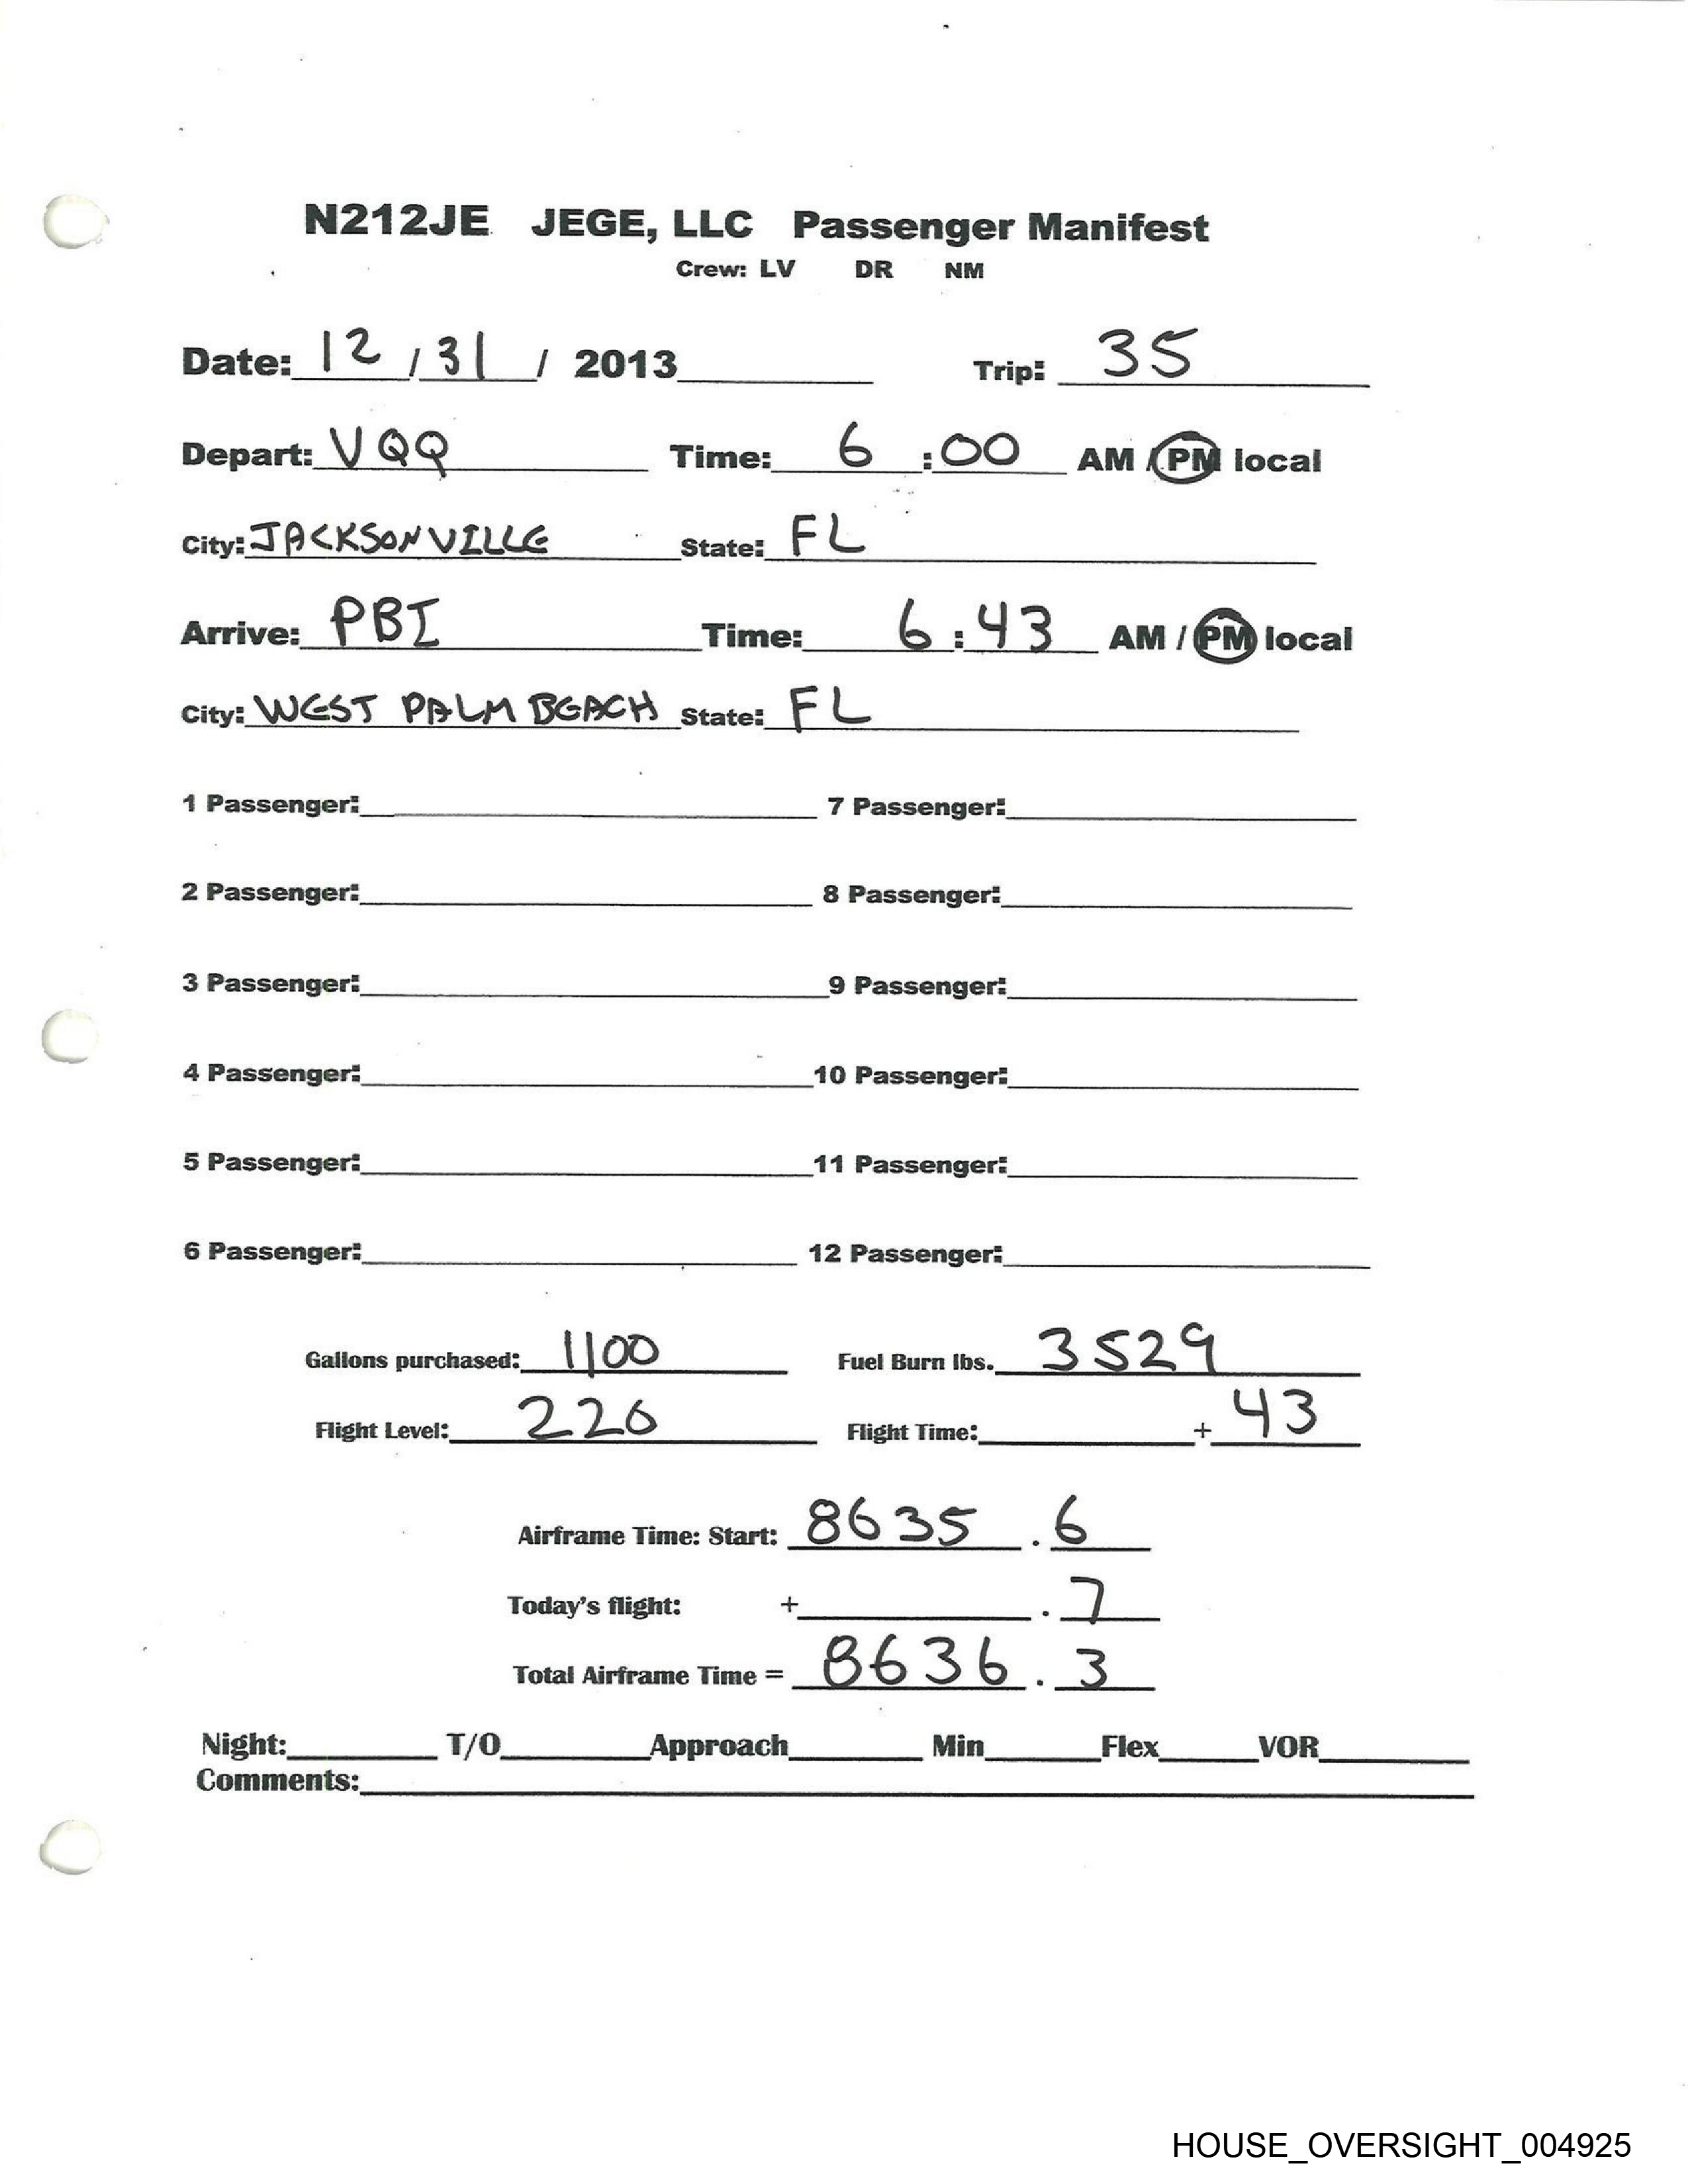 N212JE JEGE, LLC Passenger Manifest
Crew: LV DR NM
Date: 12 / 31 / 2013 Trip: 35
Depart: VQQ Time: 6 : 00 AM / PM local
City: JACKSONVILLE State: FL
Arrive: PBI Time: 6 : 43 AM / PM local
City: WEST PALM BEACH State: FL
1 Passenger: 7 Passenger:
2 Passenger: 8 Passenger:
3 Passenger: 9 Passenger:
4 Passenger: 10 Passenger:
5 Passenger: 11 Passenger:
6 Passenger: 12 Passenger:
Gallons purchased: 1100 Fuel Burn lbs. 3529
Flight Level: 220 Flight Time: + 43
Airframe Time: Start: 8635 . 6
Today's flight: + . 7
Total Airframe Time = 8636 . 3
Night: T/O Approach Min Flex VOR
Comments:
HOUSE_OVERSIGHT_004925